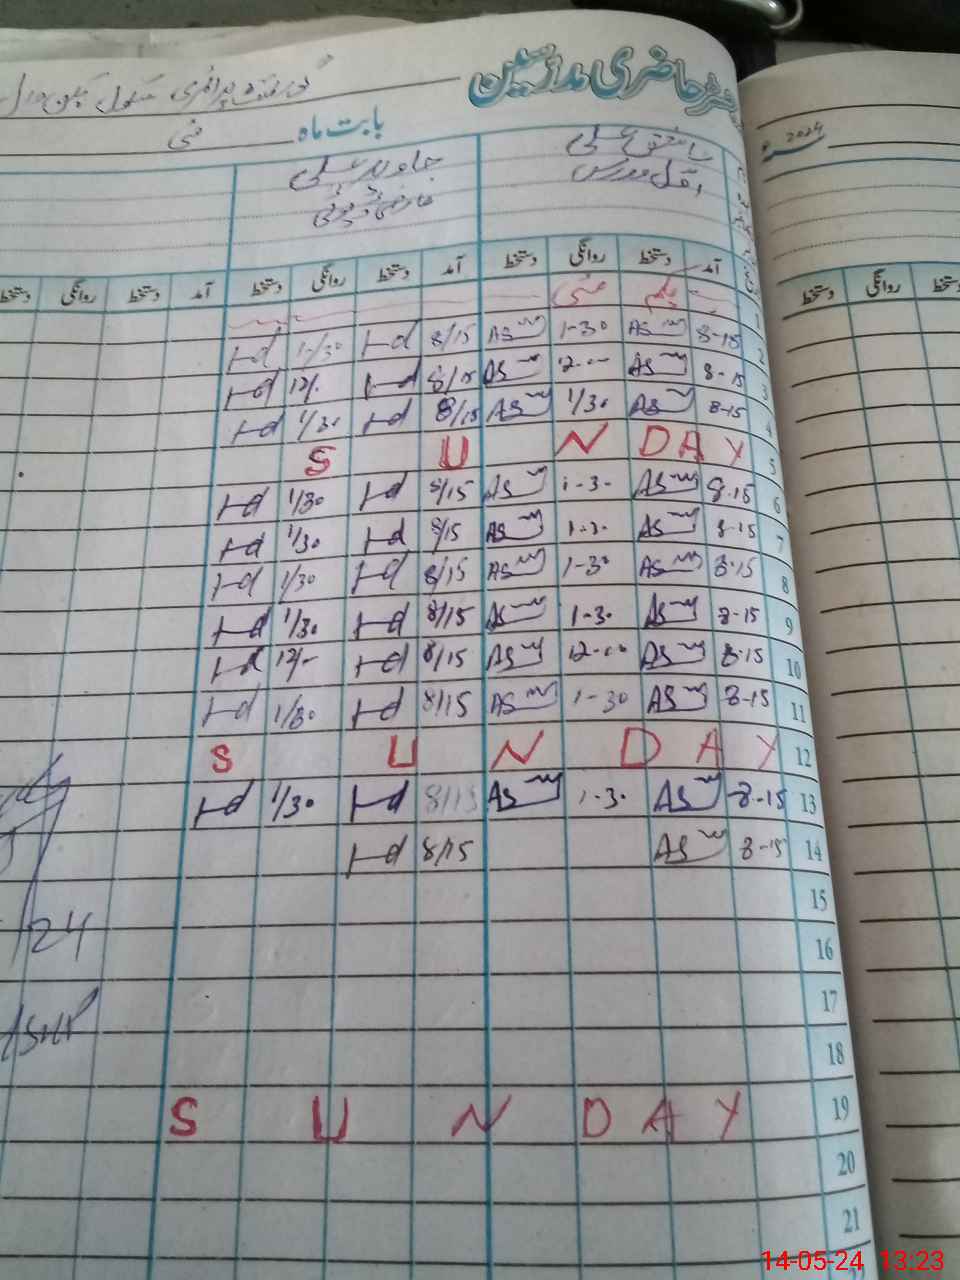 حاضری مدرسین
2024
بابت ماہ مئی
آمد دستخط روانگی دستخط آمد دستخط روانگی دستخط آمد دستخط روانگی دستخط
1
2 8-15 AS 1-30 AS 8/15 Hd 1/30 Hd
3 8-15 AS 12-00 AS 8/15 Hd 12/- Hd
4 8-15 AS 1/30 AS 8/15 Hd 1/30 Hd
5 SUNDAY
6 8-15 AS 1-30 AS 8/15 Hd 1/30 Hd
7 8-15 AS 1-30 AS 8/15 Hd 1/30 Hd
8 8-15 AS 1-30 AS 8/15 Hd 1/30 Hd
9 8-15 AS 1-30 AS 8/15 Hd 1/30 Hd
10 8-15 AS 12-00 AS 8/15 Hd 12/- Hd
11 8-15 AS 1-30 AS 8/15 Hd 1/30 Hd
12 SUNDAY
13 8-15 AS 1-30 AS 8/15 Hd 1/30 Hd
14 8-15 AS 8/15 Hd
15
16
24
17
18
19 SUNDAY
20
21
دستخط روانگی
14-05-24 13:23